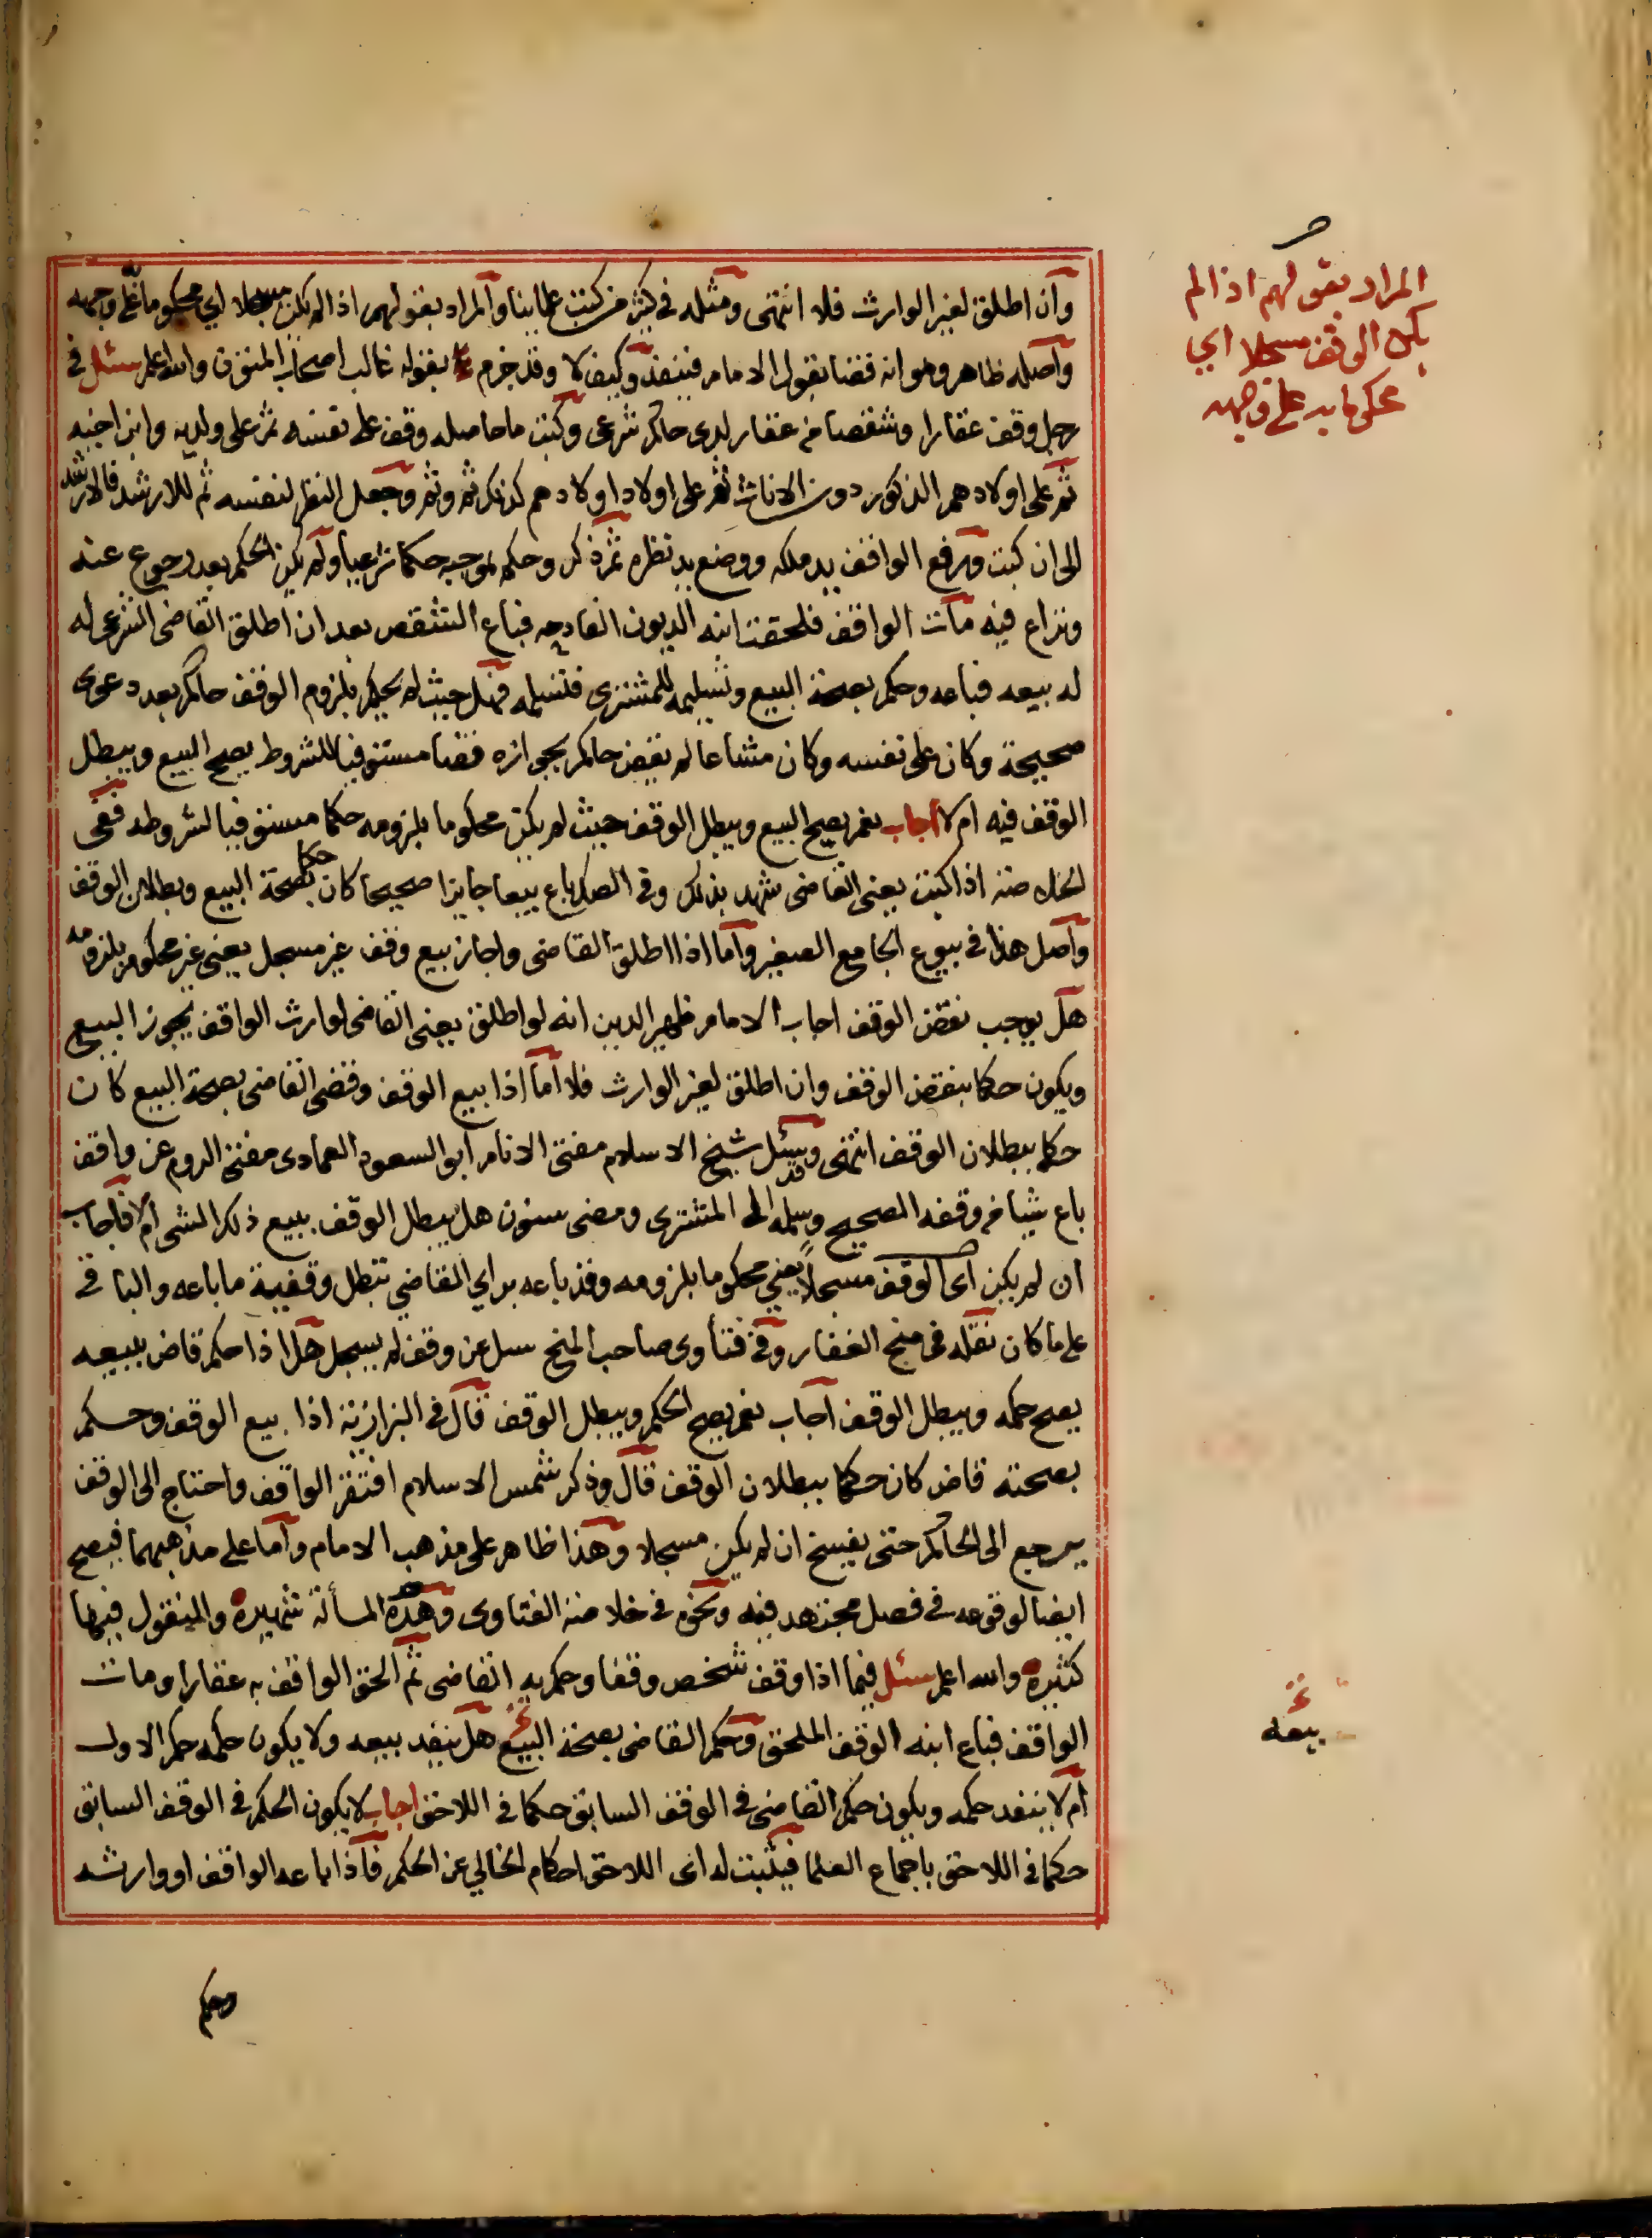 وان اطلق لغير الوارث فلا انتهى ومثله في كثير من كتب علماينا والمراد بقولهم اذا لم يكن مسجلا اي محكوما على وجهه
واصله ظاهر وهو انه قضا بقول الامام فينفذ وكيف لا وقد جزم بقوله غالب اصحاب المتون والله اعلم سئل في
رجل وقف عقارا وشقصا من عقار لدى حاكم شرعى وكتب ما حاصله وقف على نفسه ثم على ولديه وابن اخيه
ثم على اولادهم الذكور دون الاناث ثم على اولاد اولادهم كذلك ثم وثم وجعل النظر لنفسه ثم للارشد فالارشد
الى ان كتب ورفع الواقف يد ملكه ووضع يد نظره ثم ذكر وحكم بموجبه حكما شرعيا ولم يكن الحكم بعد رجوع عنه
ونزاع فيه مات الواقف فلحقت ابنه الديون الفادحه فباع الشقص بعد ان اطلق القاضى الشرعى له
له بيعه فباعه وحكم بصحة البيع وتسليمه للمشترى فتسلمه فهل حيث لم يحكم بلزوم الوقف حاكم بعد دعوى
صحيحة وكان على نفسه وكان مشاعا لم يقض حاكم بجوازه قضا مستوفيا للشروط يصح البيع ويبطل
الوقف فيه ام لا اجاب نعم يصح البيع ويبطل الوقف حيث لم يكن محكوما بلزومه حكما مستوفيا لشروطه ففى
الخلاصة اذا كتب يعنى القاضى شهد بذلك وفى الصك باع بيعا جايزا صحيحا كان حكما بصحة البيع وبطلان الوقف
واصل هذا في بيوع الجامع الصغير واما اذا اطلق القاضى واجاز بيع وقف غير مسجل يعنى غير محكوم بلزومه
هل يوجب نقض الوقف اجاب الامام ظهير الدين انه لو اطلق يعنى القاضى لوارث الواقف يجوز البيع
ويكون حكما بنقض الوقف وان اطلق لغير الوارث فلا اما اذا بيع الوقف وقضى القاضى بصحة البيع كان
حكما ببطلان الوقف انتهى وقد سئل شيخ الاسلام مفتى الانام ابو السعود العمادى مفتى الروم عن واقف
باع شيا من وقفه الصحيح وسلمه الى المشترى ومضى سنون هل يبطل الوقف ببيع ذلك الشى ام لا فاجاب
ان لم يكن اى الوقف مسجلا يعني محكوما بلزومه وقد باعه براي القاضي تبطل وقفية ما باعه والباقى
على ما كان نقله فى منح الغفار وفى فتاوى صاحب المنح سل عن وقف لم يسجل هل اذا حكم قاض ببيعه
يصح حكمه ويبطل الوقف اجاب نعم يصح الحكم ويبطل الوقف قال فى البزازية اذا بيع الوقف وحكم
بصحته قاض كان حكما ببطلان الوقف قال وذكر شمس الاسلام افتقر الواقف واحتاج الى الوقف
يرجع الى الحاكم حتى يفسخ ان لم يكن مسجلا وهذا ظاهر على مذهب الامام واما على مذهبهما فيصح
ايضا لوقوعه فى فصل مجتهد فيه ونحوه فى خلاصة الفتاوى وهذه المسألة شهيره والمنقول فيها
كثيره والله اعلم سئل فيما اذا وقف شخص وقفا وحكم به القاضى ثم الحق الواقف به عقارا ومات
الواقف فباع ابنه الوقف الملحق وحكم القاضى بصحة البيع هل ينفد بيعه ولا يكون حكمه حكم الاول
ام لا ينفد حكمه ويكون حكم القاضى فى الوقف السابق حكما فى اللاحق اجاب لا يكون الحكم فى الوقف السابق
حكما فى اللاحق باجماع العلما فيثبت له اى اللاحق احكام الخالي عن الحكم فاذا باعه الواقف او وارثه
وحكم
المراد بقولهم اذا لم
يكن الوقف مسجلا اي
محكوما به على وجهه
بيعه